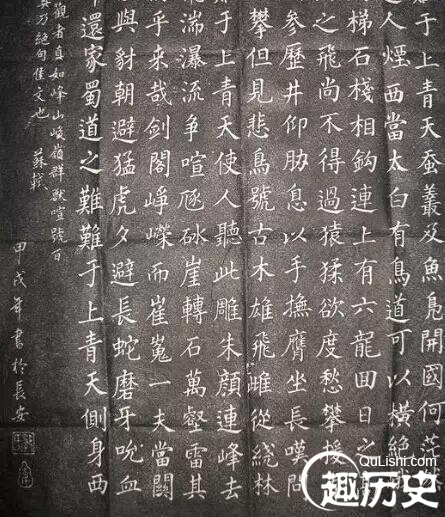 于上青天蚕叢及魚鳧開國何茫然
人煙西當太白有鳥道可以橫絕峨
梯石棧相鈎連上有六龍回日之
之飛尚不得過猿猱欲度愁攀援
參歷井仰肋息以手撫膺坐長嘆問
攀但見悲鳥號古木雄飛雌從繞林
于上青天使人聽此雕朱顏連峰去
湍瀑流爭喧豗砯崖轉石萬壑雷其
乎來哉劍閣崢嶸而崔嵬一夫當關
與豺朝避猛虎夕避長蛇磨牙吮血
還家蜀道之難難于上青天側身西
觀者真如峰山峻嶺群獸喧號百
乃絕句佳文也 蘇軾
甲戌年書於長安
QuLishi.com
趣历史